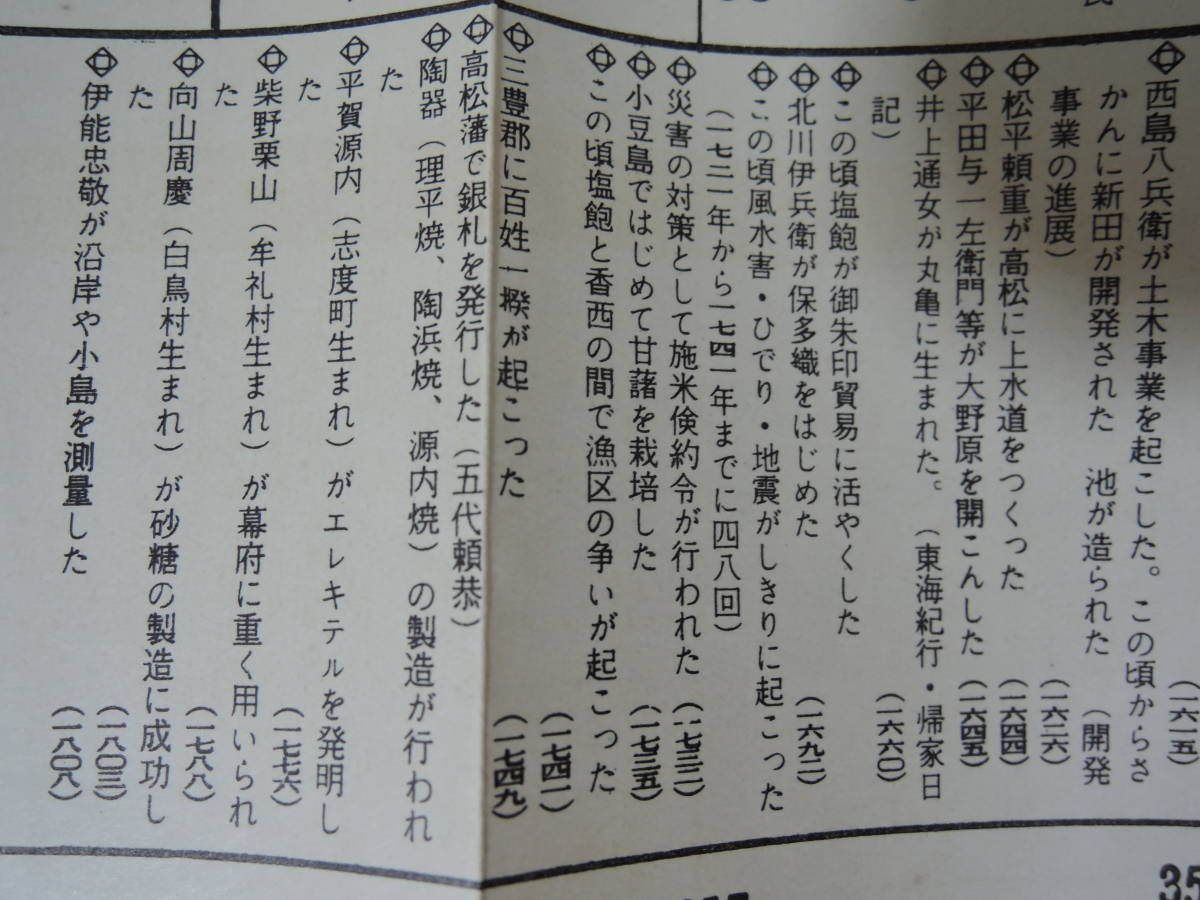 ◇西島八兵衛が土木事業を起こした。この頃からさ
かんに新田が開発された　池が造られた　（開発
事業の進展）
（一六一五）
（一六二六）
◇松平頼重が高松に上水道をつくった
（一六四四）
◇平田与一左衛門等が大野原を開こんした
（一六四五）
◇井上通女が丸亀に生まれた。（東海紀行・帰家日
記）
（一六六〇）
◇この頃塩飽が御朱印貿易に活やくした
◇北川伊兵衛が保多織をはじめた
（一六九二）
◇この頃風水害・ひでり・地震がしきりに起こった
（一七三一年から一七四一年までに四八回）
◇災害の対策として施米倹約令が行われた
（一七三二）
◇小豆島ではじめて甘藷を栽培した
（一七三五）
◇この頃塩飽と香西の間で漁区の争いが起こった
（一七四一）
◇三豊郡に百姓一揆が起こった
（一七四九）
◇高松藩で銀札を発行した（五代頼恭）
◇陶器（理平焼、陶浜焼、源内焼）の製造が行われ
た
◇平賀源内（志度町生まれ）がエレキテルを発明し
た
（一七七六）
◇柴野栗山（牟礼村生まれ）が幕府に重く用いられ
た
（一七八八）
◇向山周慶（白鳥村生まれ）が砂糖の製造に成功し
た
（一八〇三）
◇伊能忠敬が沿岸や小島を測量した
（一八〇八）
35